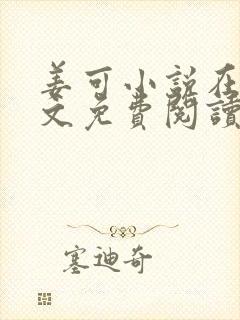 姜可小说在
文免费閱讀
塞迪奇